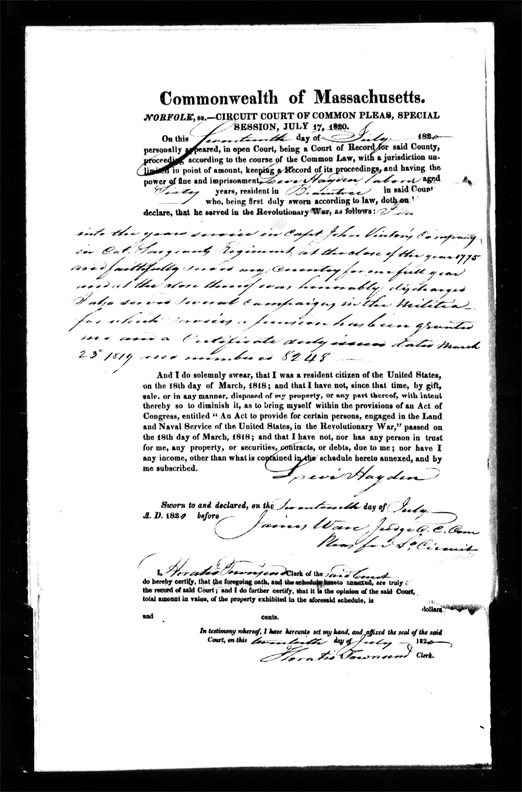 Commonwealth of Massachusetts.
NORFOLK, ss.—CIRCUIT COURT OF COMMON PLEAS, SPECIAL
SESSION, JULY 17, 1820.
On this Seventeenth day of July 1820
personally appeared, in open Court, being a Court of Record for said County,
proceeding according to the course of the Common Law, with a jurisdiction un-
limited in point of amount, keeping a Record of its proceedings, and having the
power of fine and imprisonment, Levi Hayden aged
Sixty years, resident in Braintree in said Coun
who, being first duly sworn according to law, doth on
declare, that he served in the Revolutionary War, as follows:
into the years service in Capt John Vintons Company
in Col. Sargents Regiment at the close of the year 1775
and faithfully served my Country for one full year
and at the close thereof was honorably discharged
I also served several campaigns in the Militia
for which services a pension has been granted
me and a Certificate duly issued dated March
25 1819 and numbered 8248
And I do solemnly swear, that I was a resident citizen of the United States,
on the 18th day of March, 1818; and that I have not, since that time, by gift,
sale, or in any manner, disposed of my property, or any part thereof, with intent
thereby so to diminish it, as to bring myself within the provisions of an Act of
Congress, entitled “An Act to provide for certain persons, engaged in the Land
and Naval Service of the United States, in the Revolutionary War,” passed on
the 18th day of March, 1818; and that I have not, nor has any person in trust
for me, any property, or securities, contracts, or debts, due to me; nor have I
any income, other than what is contained in the schedule hereto annexed, and by
me subscribed.
Levi Hayden
Sworn to and declared, on the Seventeenth day of July
A. D. 1820 before
James Ware Judge C. C. Com
Pleas for S Circuit
I, Horatio Townsend Clerk of the said Court
do hereby certify, that the foregoing oath, and the schedule hereto annexed, are truly
the record of said Court; and I do further certify, that it is the opinion of the said Court,
total amount in value, of the property exhibited in the aforesaid schedule, is
dollars
and cents.
In testimony whereof, I have hereunto set my hand, and affixed the seal of the said
Court, on this day of July 1820
Horatio Townsend Clerk.